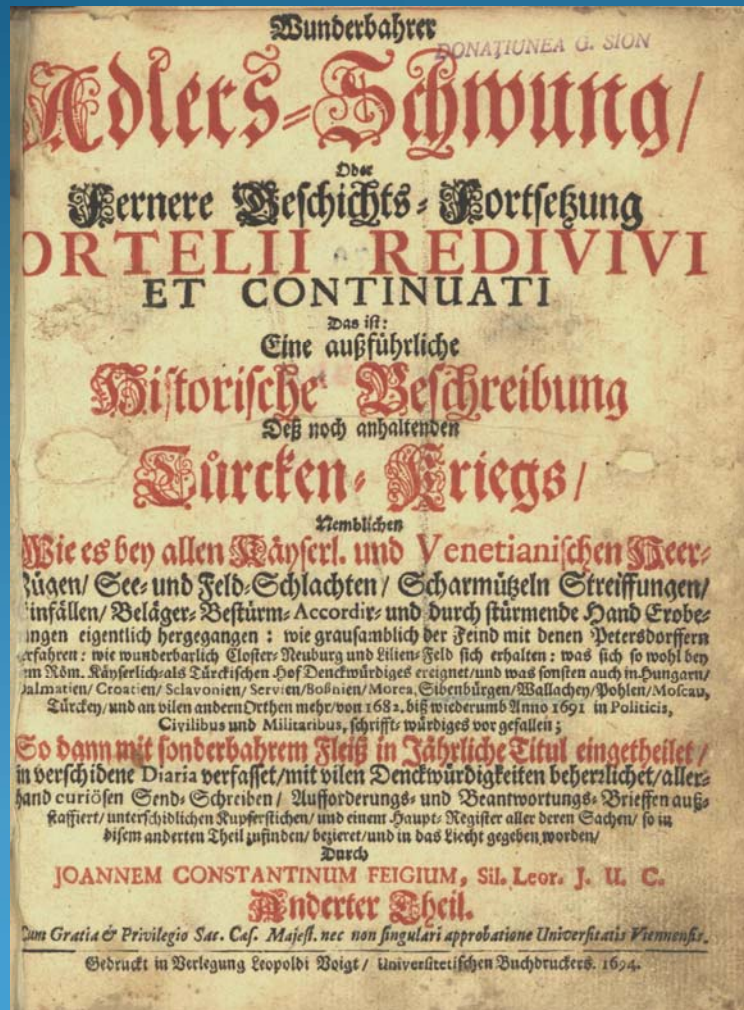 Wunderbahrer
DONAȚIUNEA G. SION
Adlers-Schwung/
Oder
Fernere Geschichts-Fortsetzung
ORTELII REDIVIVI
ET CONTINUATI
Das ist:
Eine außführliche
Historische Beschreibung
Deß noch anhaltenden
Türcken-Kriegs/
Nemblichen
Wie es bey allen Käyserl. und Venetianischen Heer-
Zügen/ See- und Feld-Schlachten/ Scharmützeln Streiffungen/
Einfällen/ Beläger- Bestürm- Accordir- und durch stürmende Hand Erobe-
rungen eigentlich hergegangen: wie grausamblich der Feind mit denen Petersdorffern
verfahren: wie wunderbarlich Closter-Neuburg und Lilien-Feld sich erhalten: was sich so wohl bey
dem Röm. Käyserlich-als Türckischen Hof Denckwürdiges ereignet/und was sonsten auch in Hungarn/
Dalmatien/ Croatien/ Sclavonien/ Servien/Boßnien/ Morea, Sibenbürgen/Wallachey/Pohlen/Moscau,
Türckey/ und an vilen andern Orthen mehr/von 1682. biß wiederumb Anno 1691 in Politicis,
Civilibus und Militaribus, schrifft-würdiges vor gefallen;
So dann mit sonderbahrem Fleiß in Jährliche Titul eingetheilet/
in verschidene Diaria verfasset/mit vilen Denckwürdigkeiten beherzlichet/aller-
hand curiösen Send-Schreiben/ Aufforderungs- und Beantwortungs-Brieffen auß-
staffiert/ unterschidlichen Kupferstichen/ und einem Haupt-Register aller deren Sachen/ so in
disem anderten Theil zufinden/ bezieret/und in das Liecht gegeben worden/
Durch
JOANNEM CONSTANTINUM FEIGIUM, Sil. Leor. J. U. C.
Anderter Theil.
Cum Gratia & Privilegio Sac. Cæs. Majest. nec non singulari approbatione Universitatis Viennensis.
Gedruckt in Verlegung Leopoldi Voigt/ Universitetischen Buchdruckers. 1694.